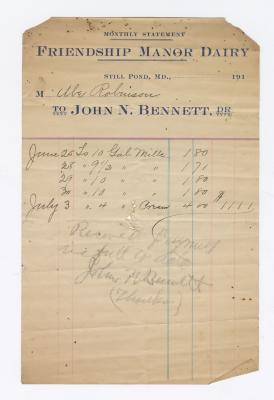 MONTHLY STATEMENT
FRIENDSHIP MANOR DAIRY
STILL POND, MD., 191
M Abe Robinson
TO JOHN N. BENNETT, DR.
June 26 To 10 Gal Milk 1 80
28 " 9 1/2 " " 1 71
29 " 10 " " 1 80
30 " 10 " " 1 80
July 3 " 4 " Cream 4 00 $ 11 11
Received Payment
in full to date
John N Bennett
(Thanks)